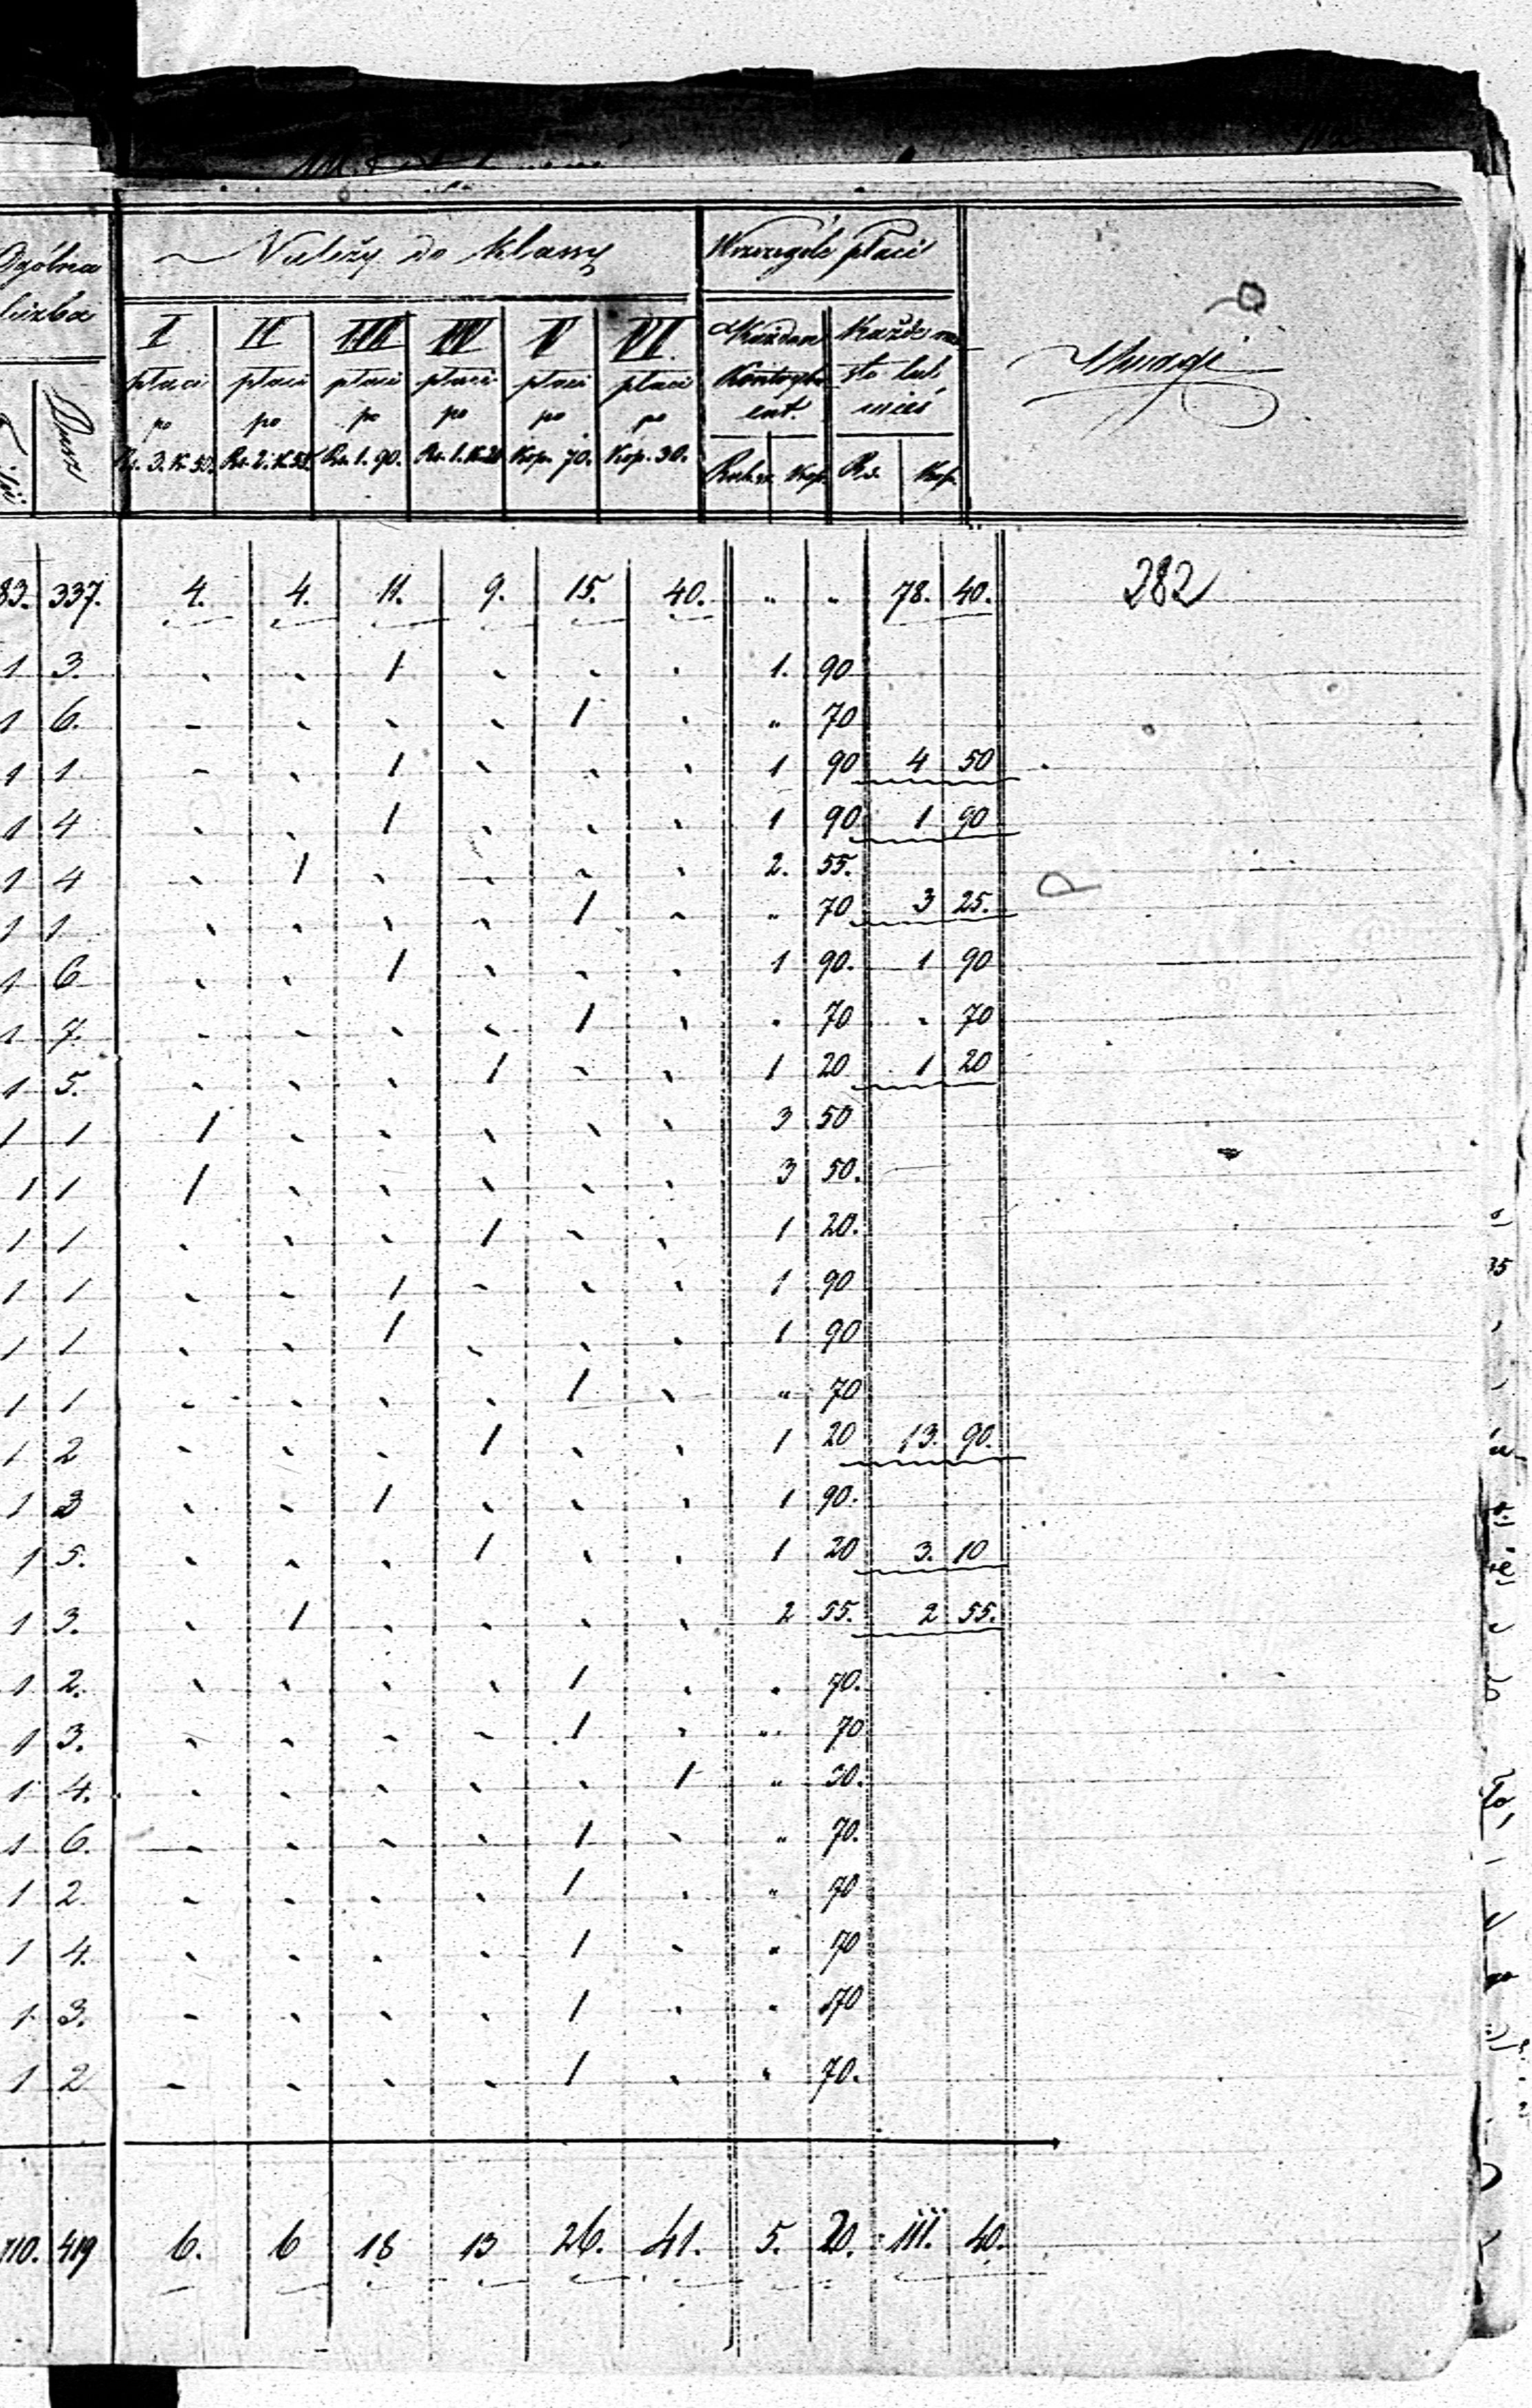 Ogólna liczba | Należy do klassy | Wszczególe płaci | Uwagi
Dusz | I płaci po Rs. 3. K. 50. | II płaci po Rs. 2. K. 55. | III płaci po Rs. 1. 90. | IV płaci po Rs. 1. K. 20 | V płaci po Kop. 70. | VI płaci po Kop. 30. | Każden Kontrybuent. Rubsr. Kop. | Każde miasto lub wieś Rs. Kop.
83. 337. 4. 4. 11. 9. 15. 40. " " 78. 40. 282
1 3. " " 1 " " " 1. 90
1 6. " " " " 1 " " 70
1 1 " " 1 " " " 1 90 4 50
1 4 " " 1 " " " 1 90 1 90
1 4 " 1 " " " " 2. 55.
1 1 " " " " 1 " " 70 3 25.
1 6 " " 1 " " " 1 90. 1 90
1 7. " " " " 1 " " 70 " 70
1 5. " " " 1 " " 1 20 1 20
1 1 1 " " " " " 3 50
1 1 1 " " " " " 3 50.
1 1 " " " 1 " " 1 20.
1 1 " " 1 " " " 1 90
1 1 " " 1 " " " 1 90
1 1 " " " " 1 " " 70
1 2 " " " 1 " " 1 20 13. 90.
1 3 " " 1 " " " 1 90.
1 5. " " " 1 " " 1 20 3. 10
1 3. " 1 " " " " 2 55. 2 55.
1 2. " " " " 1 " " 70.
1 3. " " " " 1 " " 70
1 4. " " " " " 1 " 30.
1 6. " " " " 1 " " 70.
1 2. " " " " 1 " " 70
1 4. " " " " 1 " " 70
1 3. " " " " 1 " " 70
1 2 " " " " 1 " " 70.
110. 419 6. 6 18 13 26. 41. 5. 20. 111. 40.